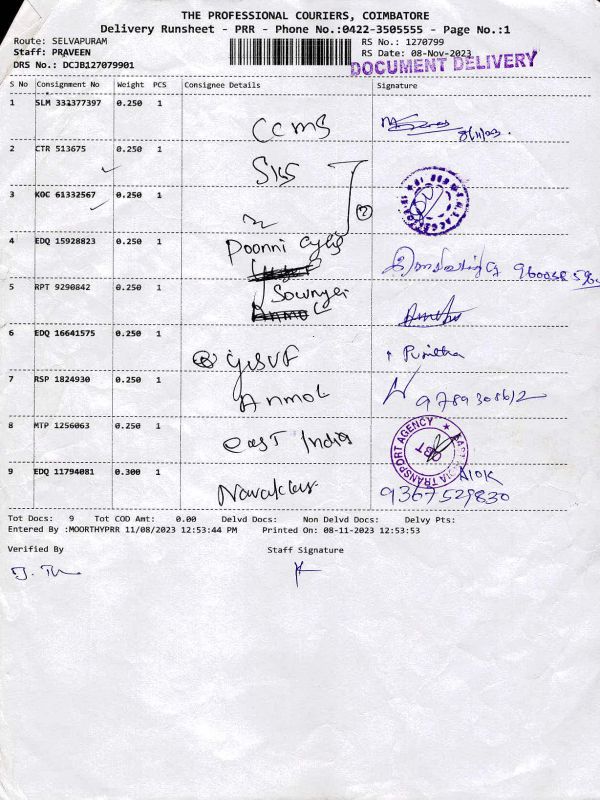 THE PROFESSIONAL COURIERS, COIMBATORE
Delivery Runsheet - PRR - Phone No.:0422-3505555 - Page No.:1
Route: SELVAPURAM
RS No.: 1270799
Staff: PRAVEEN
RS Date: 08-Nov-2023
DRS No.: DCJB127079901
DOCUMENT DELIVERY
S No Consignment No Weight PCS Consignee Details Signature
1 SLM 331377397 0.250 1 CCMS 8/11/23.
2 CTR 513675 0.250 1 SKS
3 KOC 61332567 0.250 1 2
4 EDQ 15928823 0.250 1 Poonni
5 RPT 9290842 0.250 1
Anmol
6 EDQ 16641575 0.250 1 Punitha
7 RSP 1824930 0.250 1 Anmol
8 MTP 1256063 0.250 1 East India
EAST INDIA TRANSPORT AGENCY CBT
9 EDQ 11794081 0.300 1 Alok
9367529830
Tot Docs: 9 Tot COD Amt: 0.00 Delvd Docs: Non Delvd Docs: Delvy Pts:
Entered By :MOORTHYPRR 11/08/2023 12:53:44 PM Printed On: 08-11-2023 12:53:53
Verified By Staff Signature